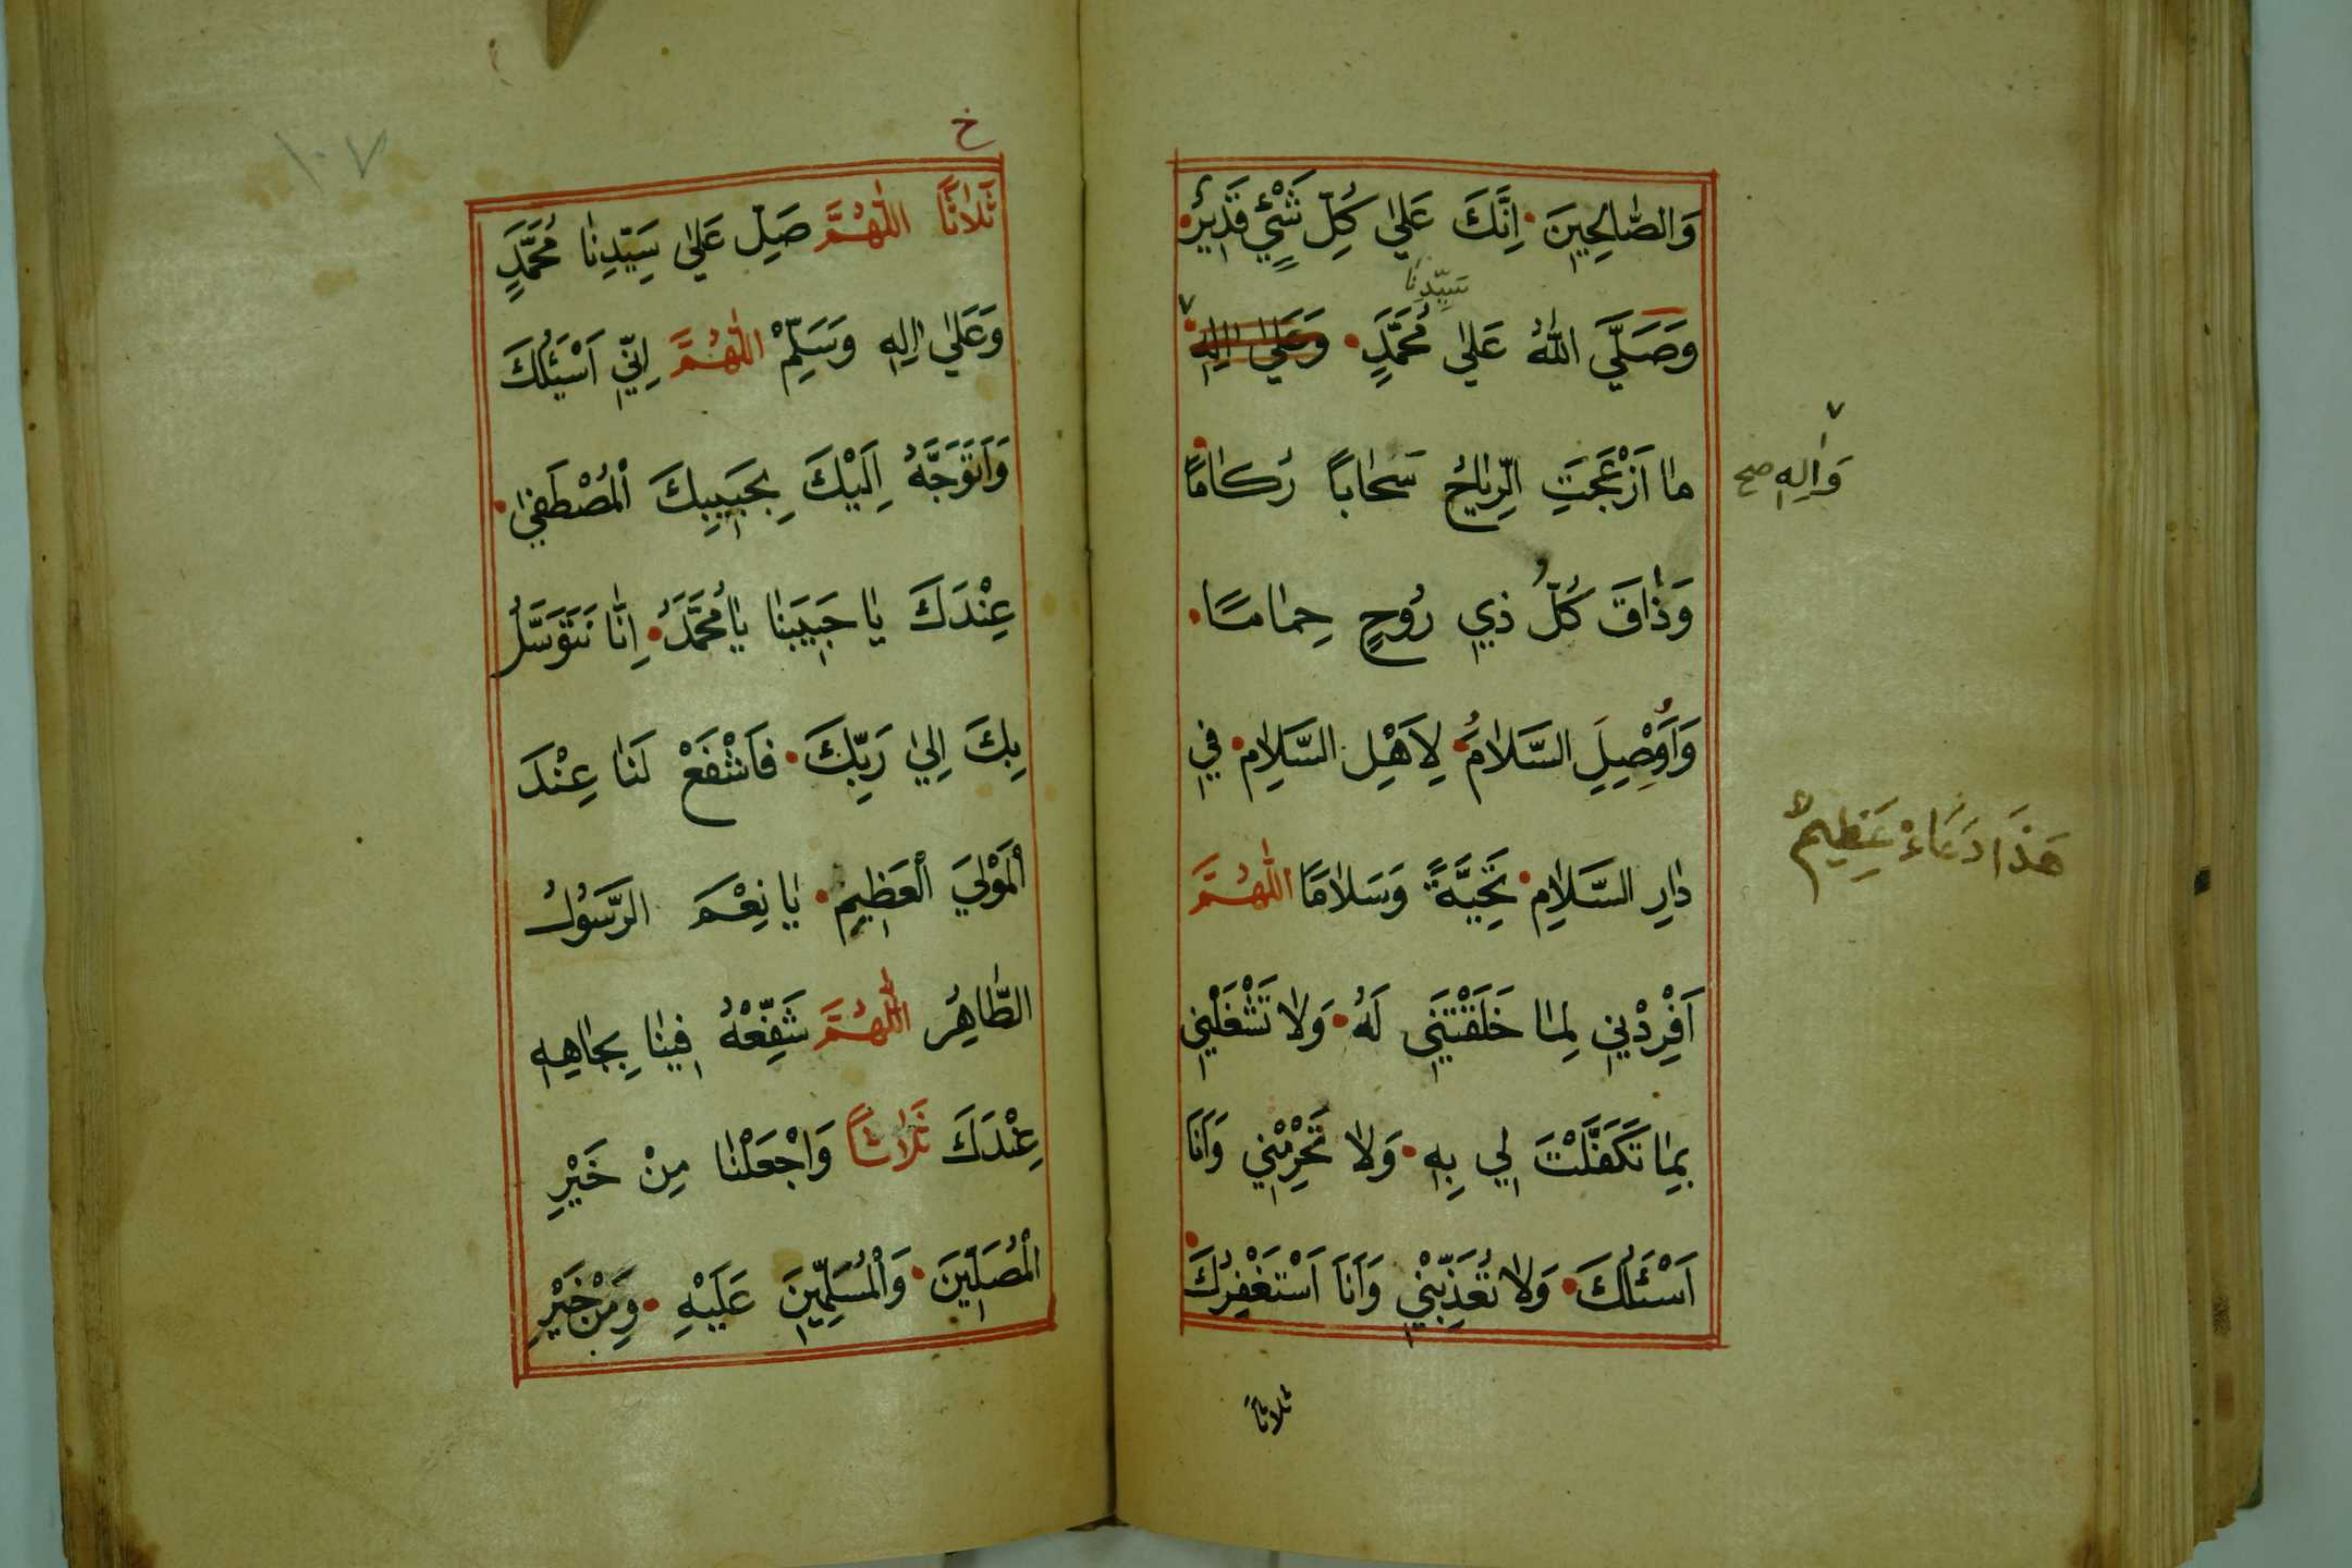 وَالصَّالِحِينَ إِنَّكَ عَلَى كُلِّ شَيْءٍ قَدِيرٌ
سَيِّدِنَا
وَصَلَّى اللهُ عَلَى مُحَمَّدٍ وَعَلَى اٰلِهِ
مَا اَزْعَجَتِ الرِّيَاحُ سَحَابًا رُكَامًا
وَاٰلِهِ صح
وَذَاقَ كُلُّ ذِي رُوحٍ حِمَامًا
وَاَوْصِلِ السَّلَامَ لِاَهْلِ السَّلَامِ فِي
دَارِ السَّلَامِ تَحِيَّةً وَسَلَامًا اللّٰهُمَّ
هَذَا دُعَاءٌ عَظِيمٌ
اَفْرِدْنِي لِمَا خَلَقْتَنِي لَهُ وَلَا تَشْغَلْنِي
بِمَا تَكَفَّلْتَ لِي بِهِ وَلَا تَحْرِمْنِي وَاَنَا
اَسْئَلُكَ وَلَا تُعَذِّبْنِي وَاَنَا اَسْتَغْفِرُكَ
ثلاثًا
١٠٧
خ
ثَلَاثًا اللّٰهُمَّ صَلِّ عَلَى سَيِّدِنَا مُحَمَّدٍ
وَعَلَى اٰلِهِ وَسَلِّمْ اللّٰهُمَّ اِنِّي اَسْئَلُكَ
وَاَتَوَجَّهُ اِلَيْكَ بِحَبِيبِكَ الْمُصْطَفَى
عِنْدَكَ يَا حَبِيبَنَا يَا مُحَمَّدُ اِنَّا نَتَوَسَّلُ
بِكَ اِلَى رَبِّكَ فَاشْفَعْ لَنَا عِنْدَ
الْمَوْلَى الْعَظِيمِ يَا نِعْمَ الرَّسُولُ
الطَّاهِرُ اللّٰهُمَّ شَفِّعْهُ فِينَا بِجَاهِهِ
عِنْدَكَ ثَلَاثًا وَاجْعَلْنَا مِنْ خَيْرِ
الْمُصَلِّينَ وَالْمُسَلِّمِينَ عَلَيْهِ وَمِنْ خَيْرِ